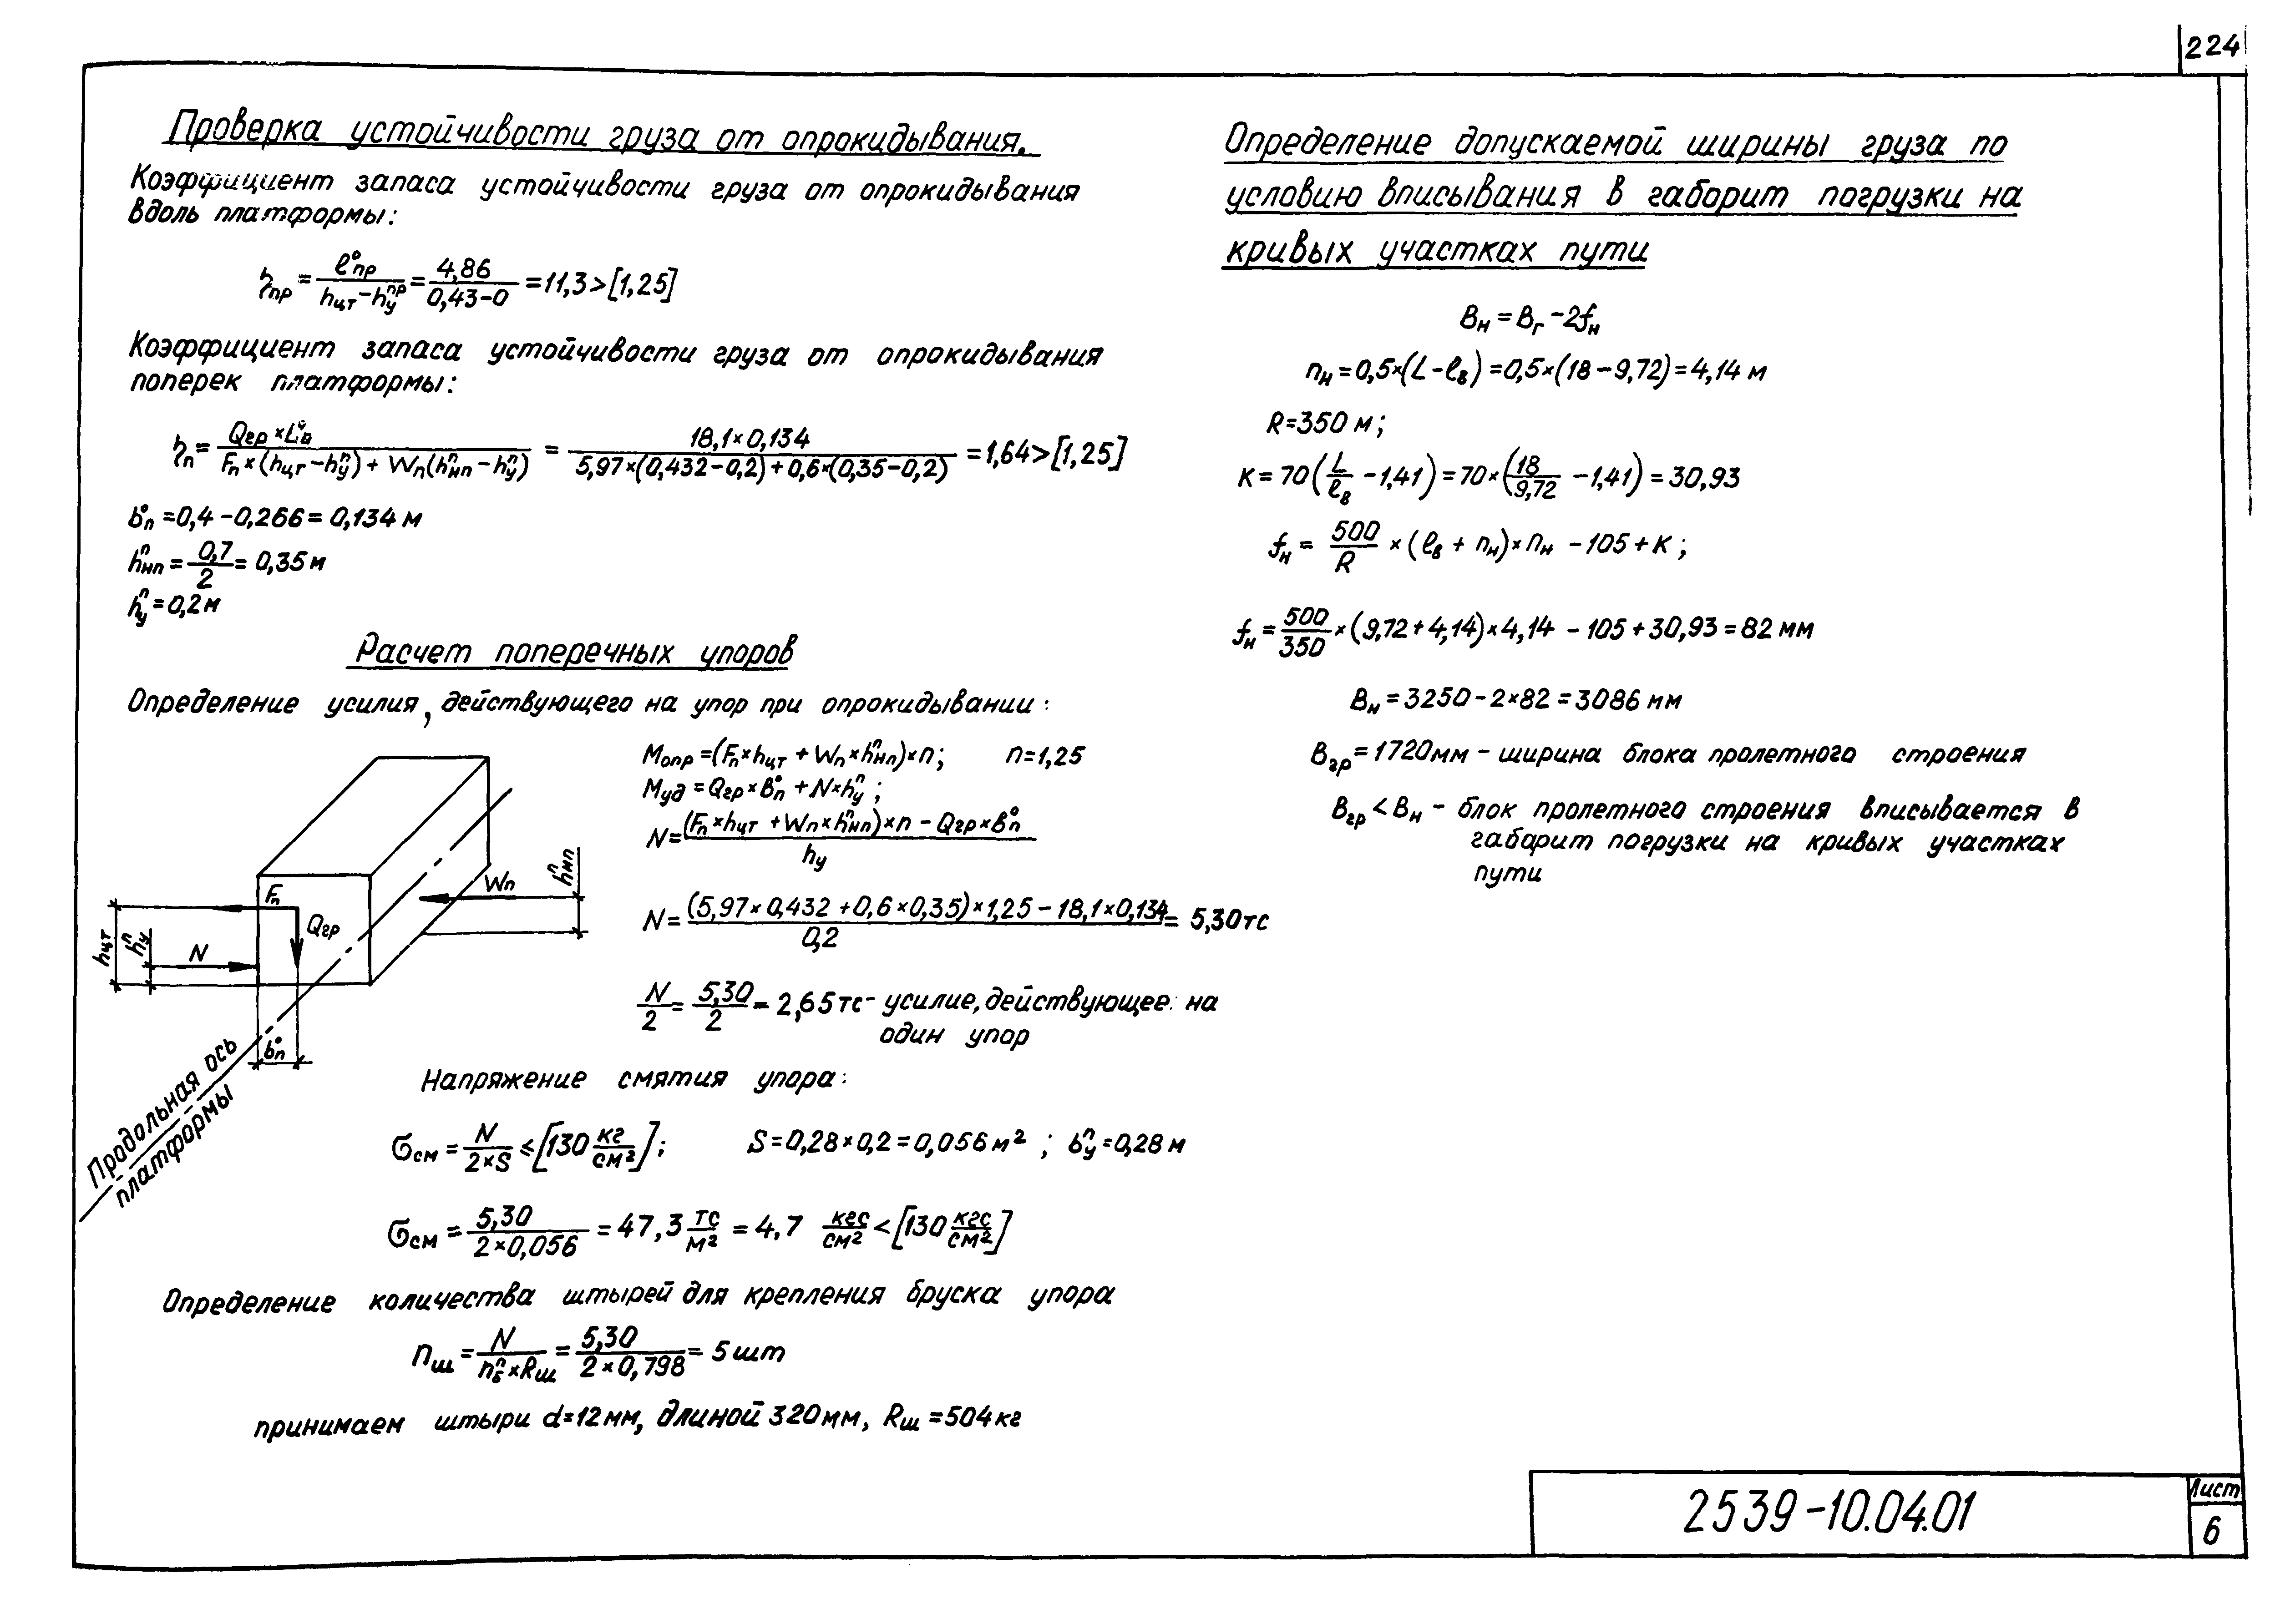 224
Проверка устойчивости груза от опрокидывания.
Коэффициент запаса устойчивости груза от опрокидывания
вдоль платформы:
ηпр = l°пр / (hцт − hу^пр) = 4,86 / (0,43−0) = 11,3 > [1,25]
Коэффициент запаса устойчивости груза от опрокидывания
поперек платформы:
ηп = Qгр × / (Fп × (hцт − hу^п) + Wп(hнп^п − hу^п)) = 18,1×0,134 / (5,97×(0,432−0,2) + 0,6×(0,35−0,2)) = 1,64 > [1,25]
b°п = 0,4 − 0,266 = 0,134 м
hнп^п = 0,7 / 2 = 0,35 м
hу^п = 0,2 м
Расчет поперечных упоров
Определение усилия, действующего на упор при опрокидывании:
Мопр = (Fп × hцт + Wп × hнп^п) × п; п = 1,25
Муд = Qгр × В°п + N × hу^п ;
N = ((Fп × hцт + Wп × hнп^п) × п − Qгр × в°п) / hу
N = ((5,97×0,432 + 0,6×0,35)×1,25 − 18,1×0,134) / 0,2 = 5,30 тс
N / 2 = 5,30 / 2 = 2,65 тс - усилие, действующее на
один упор
Fп
Qгр
Wп
hнп^п
hцт
hу^п
N
b°п
Продольная ось
платформы
Напряжение смятия упора:
σсм = N / (2×S) ≤ [130 кг/см²]; S = 0,28×0,2 = 0,056 м² ; bу^п = 0,28 м
σсм = 5,30 / (2×0,056) = 47,3 тс/м² = 4,7 кгс/см² < [130 кгс/см²]
Определение количества штырей для крепления бруска упора
пш = N / (пб^п × Rш) = 5,30 / (2×0,798) = 5 шт
принимаем штыри d=12 мм, длиной 320 мм, Rш = 504 кг
Определение допускаемой ширины груза по
условию вписывания в габорит погрузки на
кривых участках пути
Вн = Вг − 2fн
пн = 0,5×(L − ℓв) = 0,5×(18 − 9,72) = 4,14 м
R = 350 м ;
К = 70 (L/ℓв − 1,41) = 70×(18/9,72 − 1,41) = 30,93
fн = 500/R × (ℓв + пн) × пн − 105 + К ;
fн = 500/350 × (9,72 + 4,14) × 4,14 − 105 + 30,93 = 82 мм
Вн = 3250 − 2×82 = 3086 мм
Вгр = 1720 мм - ширина блока пролетного строения
Вгр < Вн - блок пролетного строения вписывается в
габарит погрузки на кривых участках
пути
2539-10.04.01
Лист
6